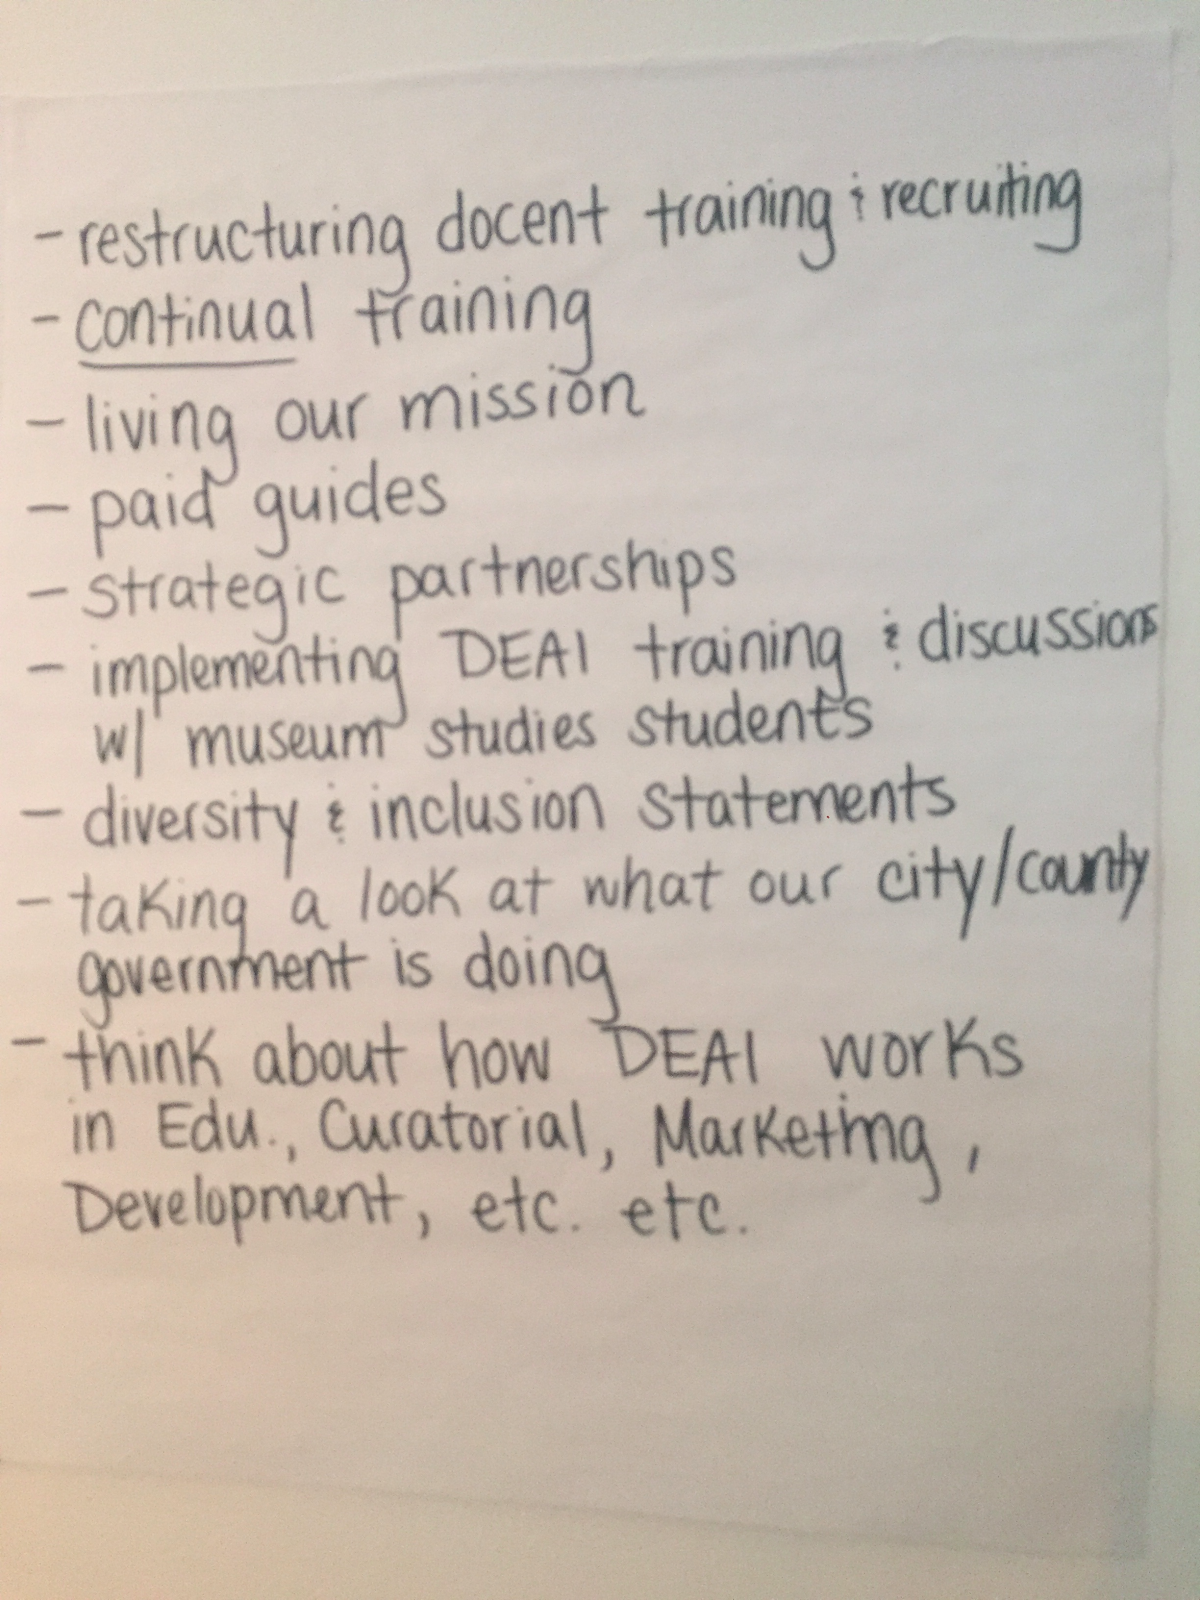 - restructuring docent training & recruiting
- continual training
- living our mission
- paid guides
- strategic partnerships
- implementing DEAI training & discussions
w/ museum studies students
- diversity & inclusion statements
- taking a look at what our city/county
government is doing
- think about how DEAI works
in Edu., Curatorial, Marketing,
Development, etc. etc.